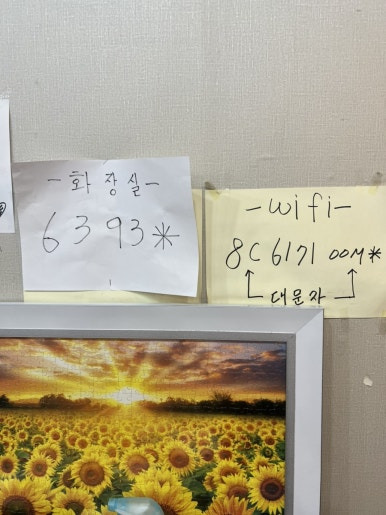 -화장실-
6393*
-wifi-
8C6171OOM*
대문자